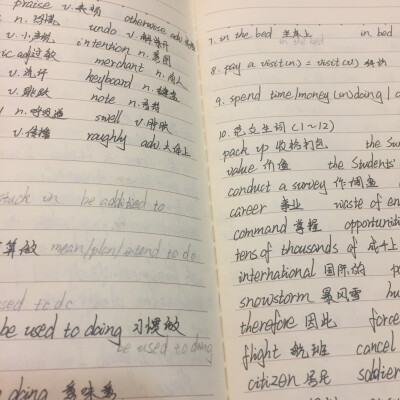 praise v.表颂
otherwise adv.
n. 习惯
undo v.解开
v.
intention n.意图
ic adj.
merchant n.商人
v.洗汗
keyboard n.键盘
v.跳跃
note n.
n.呼吸道
swell v.膨胀
v.传播
roughly adv.大体上
stuck in be addicted to
算做 mean/plan/intend to do
used to do
be used to doing 习惯做
be used to doing
doing 意味着
7. in the bed in bed
in the bed
8. pay a visit(n.) = visit(v.)
9. spend time/money (on) doing
10. 范文生词 (1~12)
pack up 收拾打包 the Su
value 价值 the Students'
conduct a survey 作调查
career 事业 waste of en
command 掌握 opportuniti
tens of thousands of 成千上
international 国际的 po
snowstorm 暴风雪 hu
therefore 因此 force
flight 航班 cancel
citizen 居民 soldier